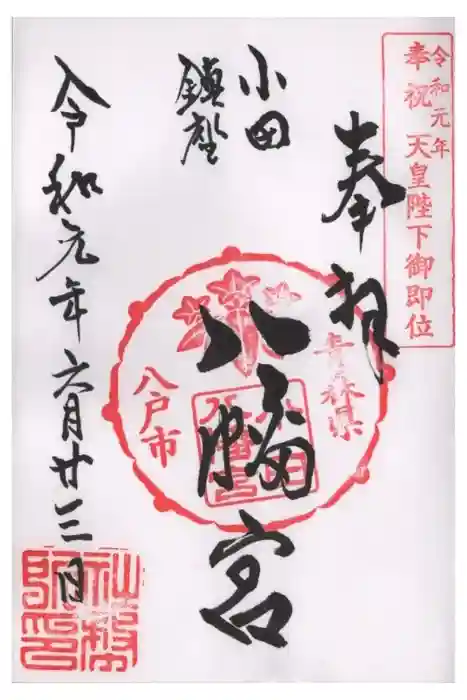 奉祝 令和元年 天皇陛下御即位
奉拝
小田
鎮座
八幡宮
青森県
八戸市
小田
八幡宮
令和元年六月廿三日
社務
所印